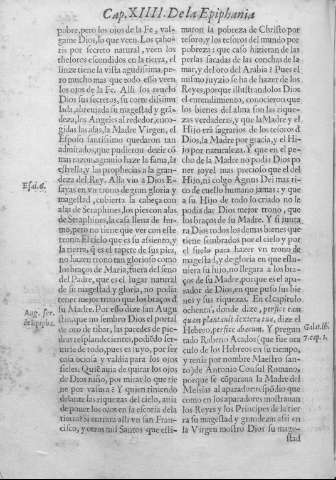 Cap. XIIII. De la Epiphania
pobre, pero los ojos de la Fe, val-
game Dios, lo que veen. Los çaho-
ris por secreto natural, veen los
thesoros escondidos en la tierra, el
linze tiene la vista agudissima, pe-
ro mucho mas que todo esso veen
los ojos de la Fe. Alli los enseñò
Dios sus secretos, su corte dissimu
lada, abreuiada su magestad y grã-
deza, los Angeles al rededor, enco-
gidas las alas, la Madre Virgen, el
Esposo santissimo quedaron tan
admirados, que pudieron dezir
mas razon, agrauio haze la fama, la
estrella, y las prophecias a la gran-
deza del Rey. Alla vio a Dios E-
sayas en vn trono de gran gloria y
magestad, cubierta la cabeça con
alas de Seraphines, los pies con alas
de Seraphines, la casa llena de
pero no tiene que ver con este
trono. El cielo que es su assiento, y
la tierra, q̃ es el tapete de los pies,
no hazen trono tan glorioso como
los braços de Maria, fuera del seno
del Padre, que es el lugar natural
de su magestad y gloria, no podia
tener mejor trono que los braços d
su Madre. Por esso dize san Augu
stin, que no embio Dios el portal
de oro de tibar, las paredes de pie-
dras resplandecientes, pudiendo ser
uirse de todo, pues es suyo, por ser
cosa ociosa y valdia para los ojos
fieles. Quien aquia de quitar los ojos
de Dios niño, por mirar lo que tie
ne por vassura? Y quien
delante las riquezas del cielo, auia
de poner los ojos en la escoria dela
tierra? Si entrara alli vn san Fran-
cisco, y otros mil Santos que esti-
maron la pobreza de Christo por
tesoro, y los tesoros del mundo por
pobreza; que caso hizieran de las
perlas sacadas de las conchas de la
mar, y del oro del Arabia? Pues el
mismo juyzio se ha de hazer de los
Reyes, porque illustrandolos Dios
el entendimiento, conocieron que
los bienes del alma son las rique-
zas verdaderas, y que la Madre y el
Hijo erã sagrarios de los tesoros d
Dios, la Madre por gracia, y el Hi-
jo por naturaleza. Y que en el pe-
cho de la Madre no podia Dios po
ner joyel mas precioso que el del
Hijo, ni colgo Agnus Dei mas ri-
co de cuello humano jamas: y que
a su Hijo de todo lo criado no le
podia dar Dios mejor trono, que
los braços de su Madre. Y si junta
ra Dios todos los demas bienes que
tiene sembrados por el cielo y por
el suelo para hazer vn trono de
magestad, y de gloria en que estu-
uiera su hijo, no llegara a los bra-
ços de su Madre, porque es el apa-
rador de Dios, en que puso sus bie
nes y sus riquezas. En el capitulo
ochenta, donde dize, perfice eam
quam plantauit dextera tua, dize el
Hebreo, perfice abacum. Y pregun
tado Rabeno Acados (que fue ora
culo de los Hebreos en su tiempo,
y tenia por nombre Maestro san-
to) de Antonio Consul Romano,
porque se cõparaua la Madre del
Messias al aparador: respõdio que
como en los aparadores mostrauan
los Reyes y los Principes de la tier
ra su magestad y grandeza assi en
la Virgen mostro Dios su mage-
stad
Esai. 6.
Aug. ser.
de Epipha.
Galat. lib.
7. cap. 1.